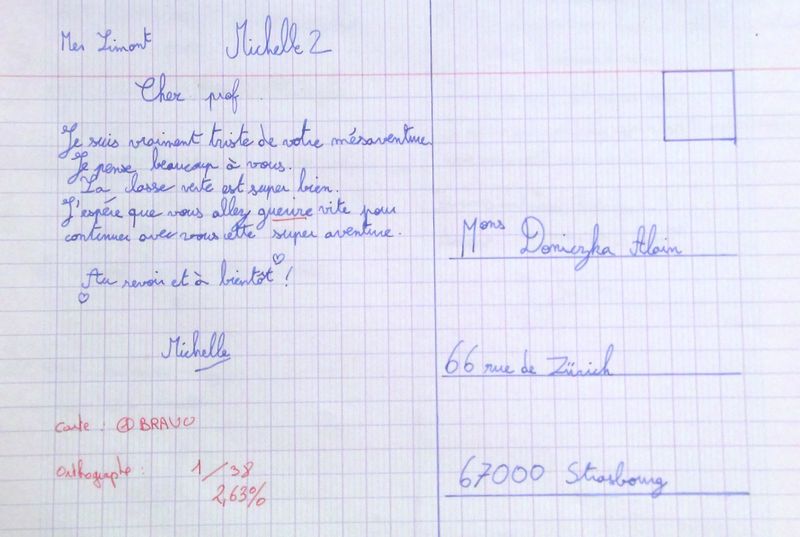 Mer Limont Michelle 2
Cher prof.
Je suis vraiment triste de votre mésaventure.
Je pense beaucoup à vous.
La classe verte est super bien.
J'espère que vous allez gueurre vite pour
continuer avec vous cette super aventure.
Au revoir et à bientôt !
Michelle
carte : BRAVO
orthographe : 1/38
2,63%
Mons Doniczka Alain
66 rue de Zürich
67000 Strasbourg